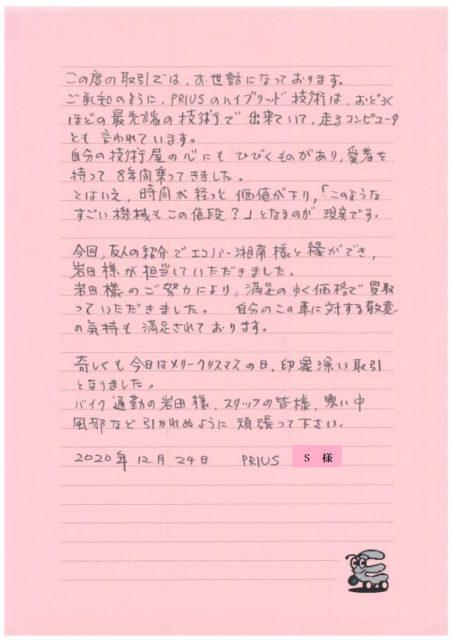 この度の取引では,お世話になっております。
ご承知のように,PRIUSのハイブリッド技術は,おどろく
ほどの最先端の技術で出来ていて,走るコンピュータ
とも言われています。
自分の技術屋の心にもひびくものがあり,愛着を
持って8年間乗ってきました。
とはいえ,時間が経つと価値が下り,「このような
すごい機械もこの値段?」となるのが現実です。
今回,友人の紹介でエコノバー湘南様と縁ができ,
岩田様が担当していただきました。
岩田様のご努力により,満足のゆく価格で買取
っていただきました。 自分のこの車に対する敬意
の気持も満足されております。
奇しくも今日はメリークリスマスの日,印象深い取引
となりました。
バイク通勤の岩田様,スタッフの皆様,寒い中
風邪など引かれぬように頑張って下さい。
2020年12月24日 PRIUS S 様